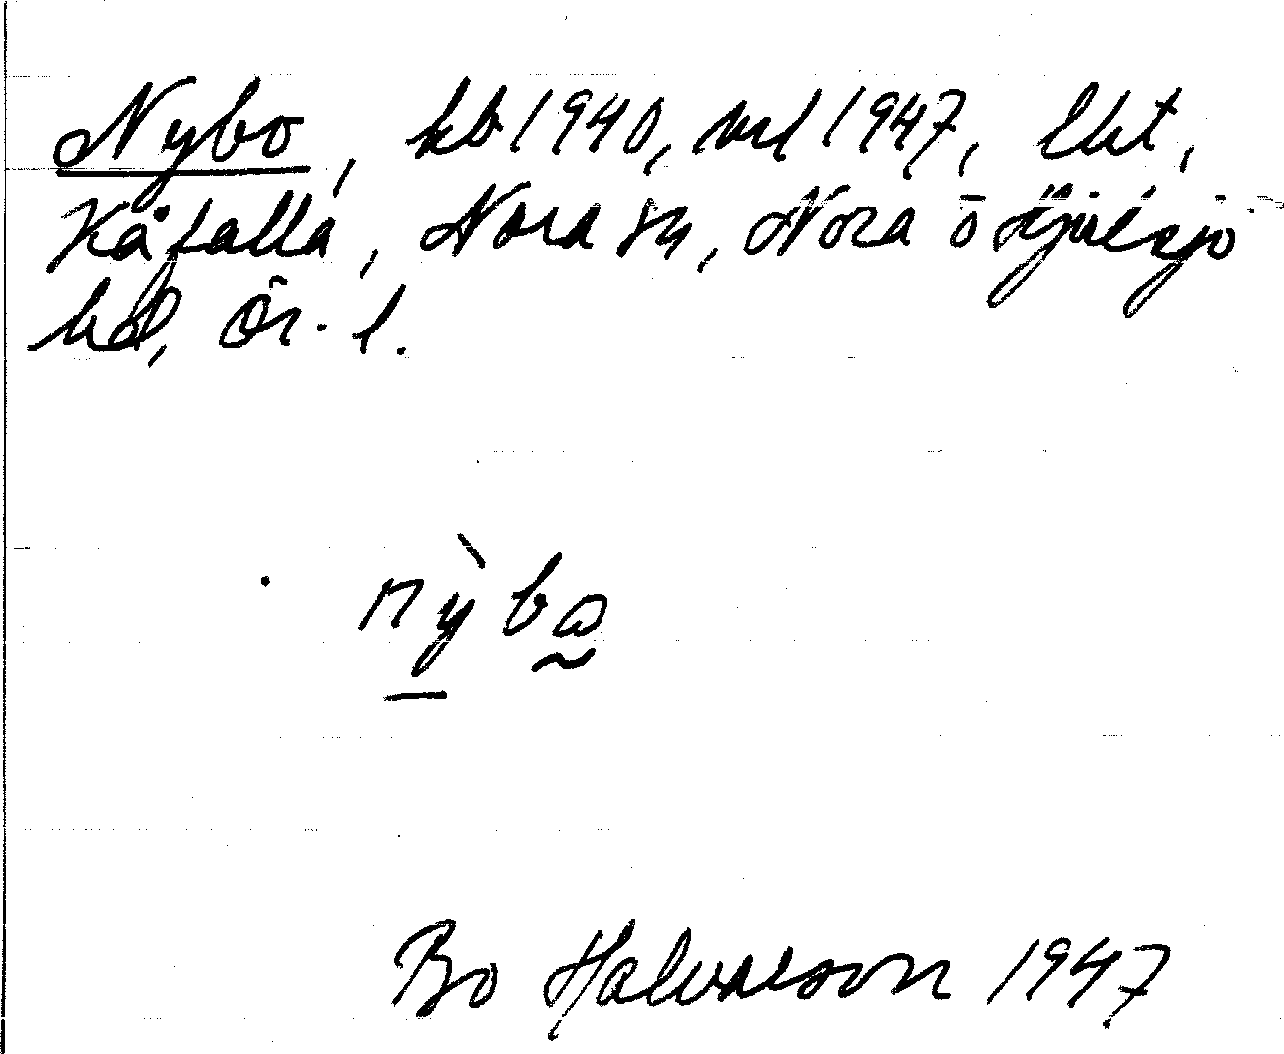 Nybo, kb 1940, url 1947, lht,
Kåfalla, Nora sn, Nora o Hjulsjö
bd, Ör. l.
nỳbo
Bo Halvarson 1947